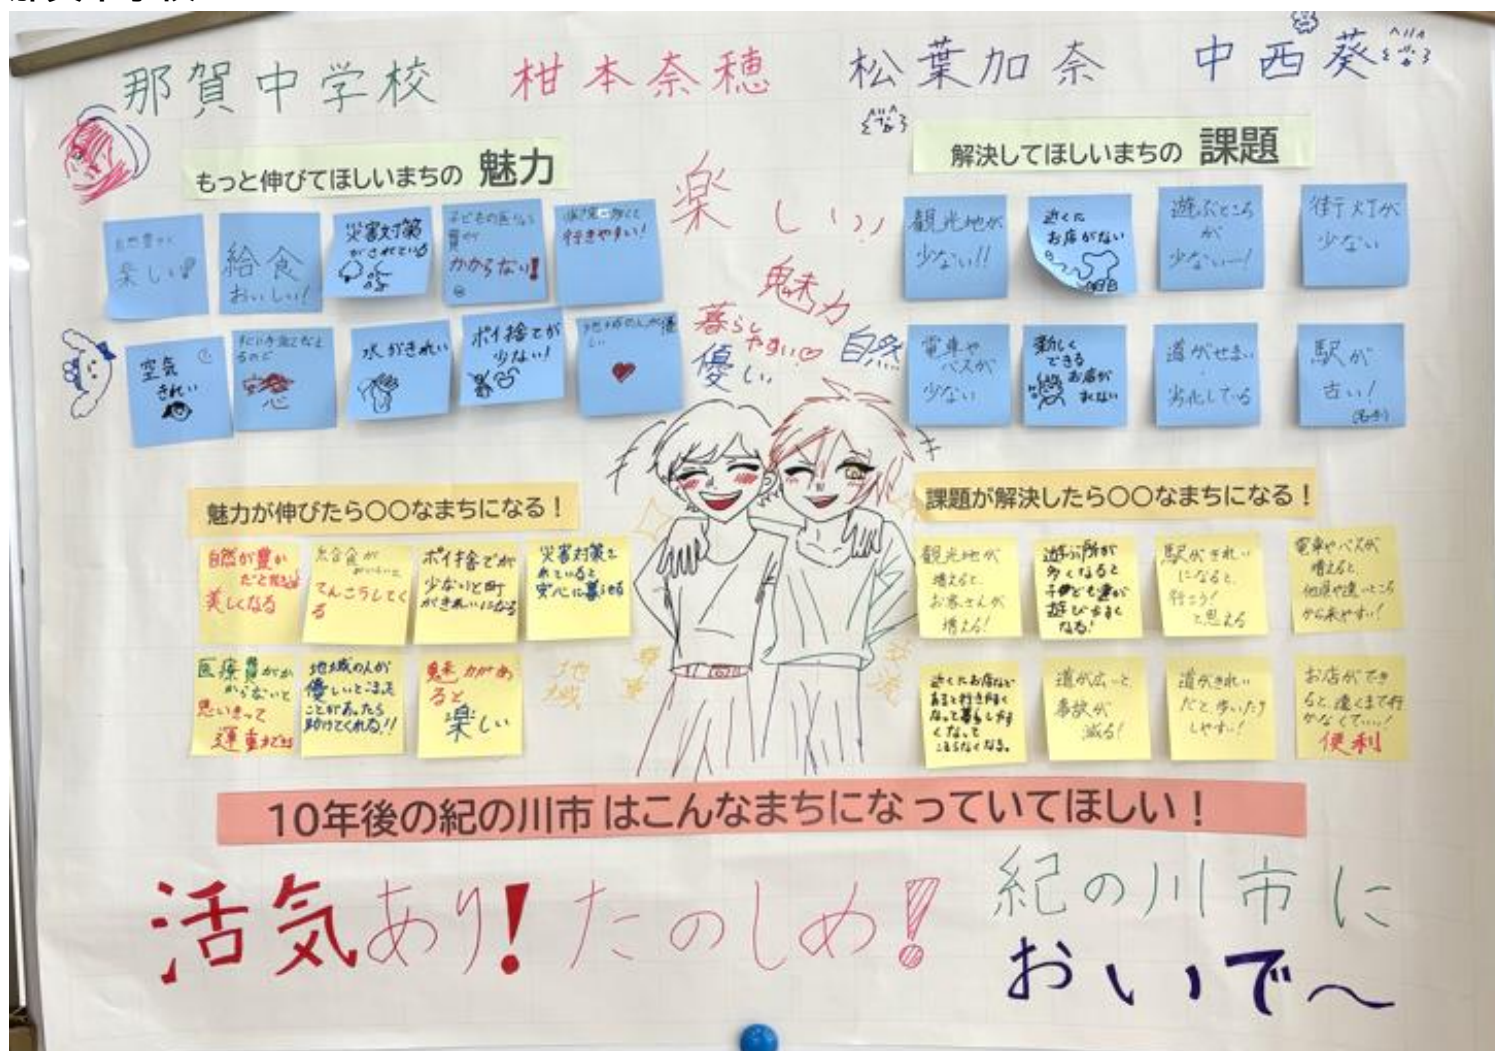 那賀中学校 柑本奈穂 松葉加奈 中西葵
もっと伸びてほしいまちの 魅力
楽しい
給食
おいしい!
災害対策
がされている
子どもの医りょう
費が
かからない!
行きやすい!
空気
きれい
水がきれい
ポイ捨てが
少ない!
地域の人が優
しい
楽しい
魅力
暮らし
やすい
優しい
自然
解決してほしいまちの 課題
観光地が
少ない!!
近くに
お店がない
遊ぶところ
が
少ないー!
街灯が
少ない
電車や
バスが
少ない
新しく
できる
お店が
すくない
道がせまい
劣化している
駅が
古い!
魅力が伸びたら〇〇なまちになる!
自然が豊か
だと
美しくなる
てんこうしてく
る
ポイ捨てが
少ないと町
がきれいになる
災害対策を
されていると
安心に暮らせる
医療費がか
からないと
思いきって
運動できる
地域の人が
優しいと
ことがあったら
助けてくれる!!
魅力があ
ると
楽しい
地域
課題が解決したら〇〇なまちになる!
観光地が
増えると、
お客さんが
増える!
遊ぶ所が
多くなると
子ども達が
遊びやすく
なる!
駅がきれい
になると、
行こう!
と思える
電車やバスが
増えると、
他県や遠いところ
から来やすい!
近くにお店など
あると行きやすく
なって暮らしやす
くなって
こまらなくなる。
道が広いと、
事故が
減る!
道がきれい
だと、歩いたり
しやすい!
お店ができ
ると、遠くまで行
かなくて…!
便利
交流
10年後の紀の川市はこんなまちになっていてほしい!
活気あり!たのしめ!
紀の川市に
おいで〜